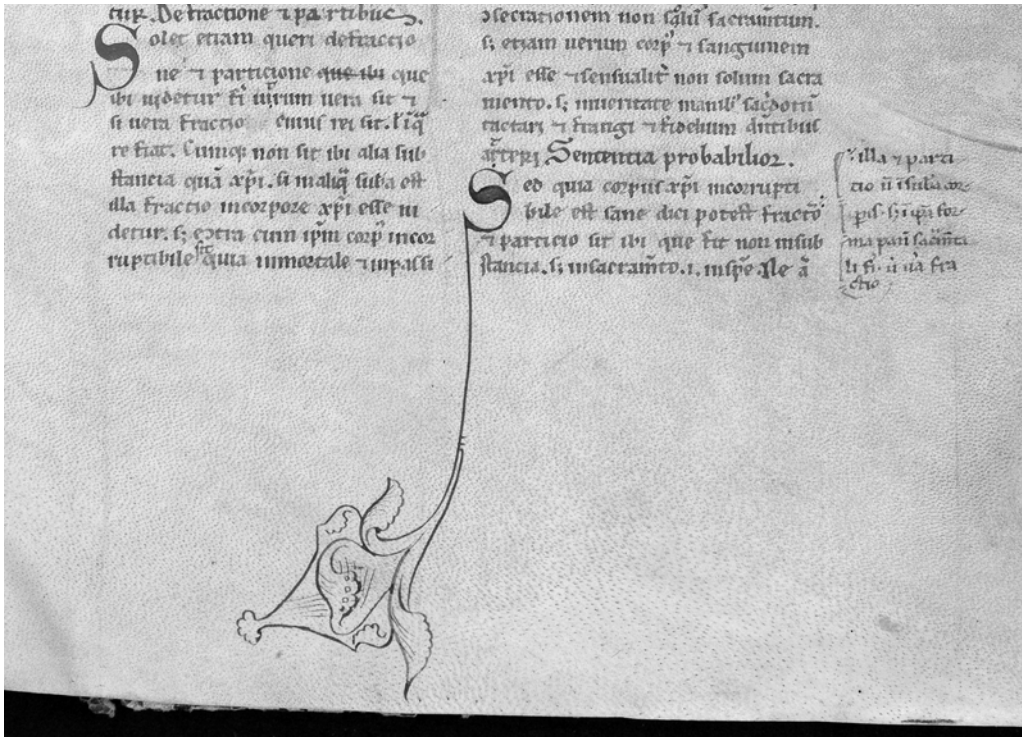 tur. De fractione ⁊ partibus.
Solet etiam queri de fractio
ne ⁊ particione que ibi que
ibi uidetur fi utrum uera sit ⁊
si uera fractio cuius rei sit. ł i q̄
re fiat. Cumq; non sit ibi alia sub
stancia quā xp̄i. si in aliq̄ suba est
illa fractio in corpore xp̄i esse ui
detur. s; ɔtra cum ip̄m corp' incor
ruptibile sit quia inmortale ⁊ inpassi
ɔsecrationem non solū sacramtum.
s; etiam uerum corp' ⁊ sanguinem
xp̄i esse ⁊ sensualit' non solum sacra
mento. s; in ueritate manib' sac̄dotū
tactari ⁊ frangi ⁊ fidelium dntibus
atteri Sentencia probabilior.
Sed quia corpus xp̄i incorrupti
bile est sane dici potest fractō
⁊ particio sit ibi que fit non in sub
stancia. s; in sacram̄to .i. in spē. Ne ā
illa ⁊ parti
tio n̄ ī suba cor
for
ma pan sac̄mta
li fi. ū ua fra
ctio